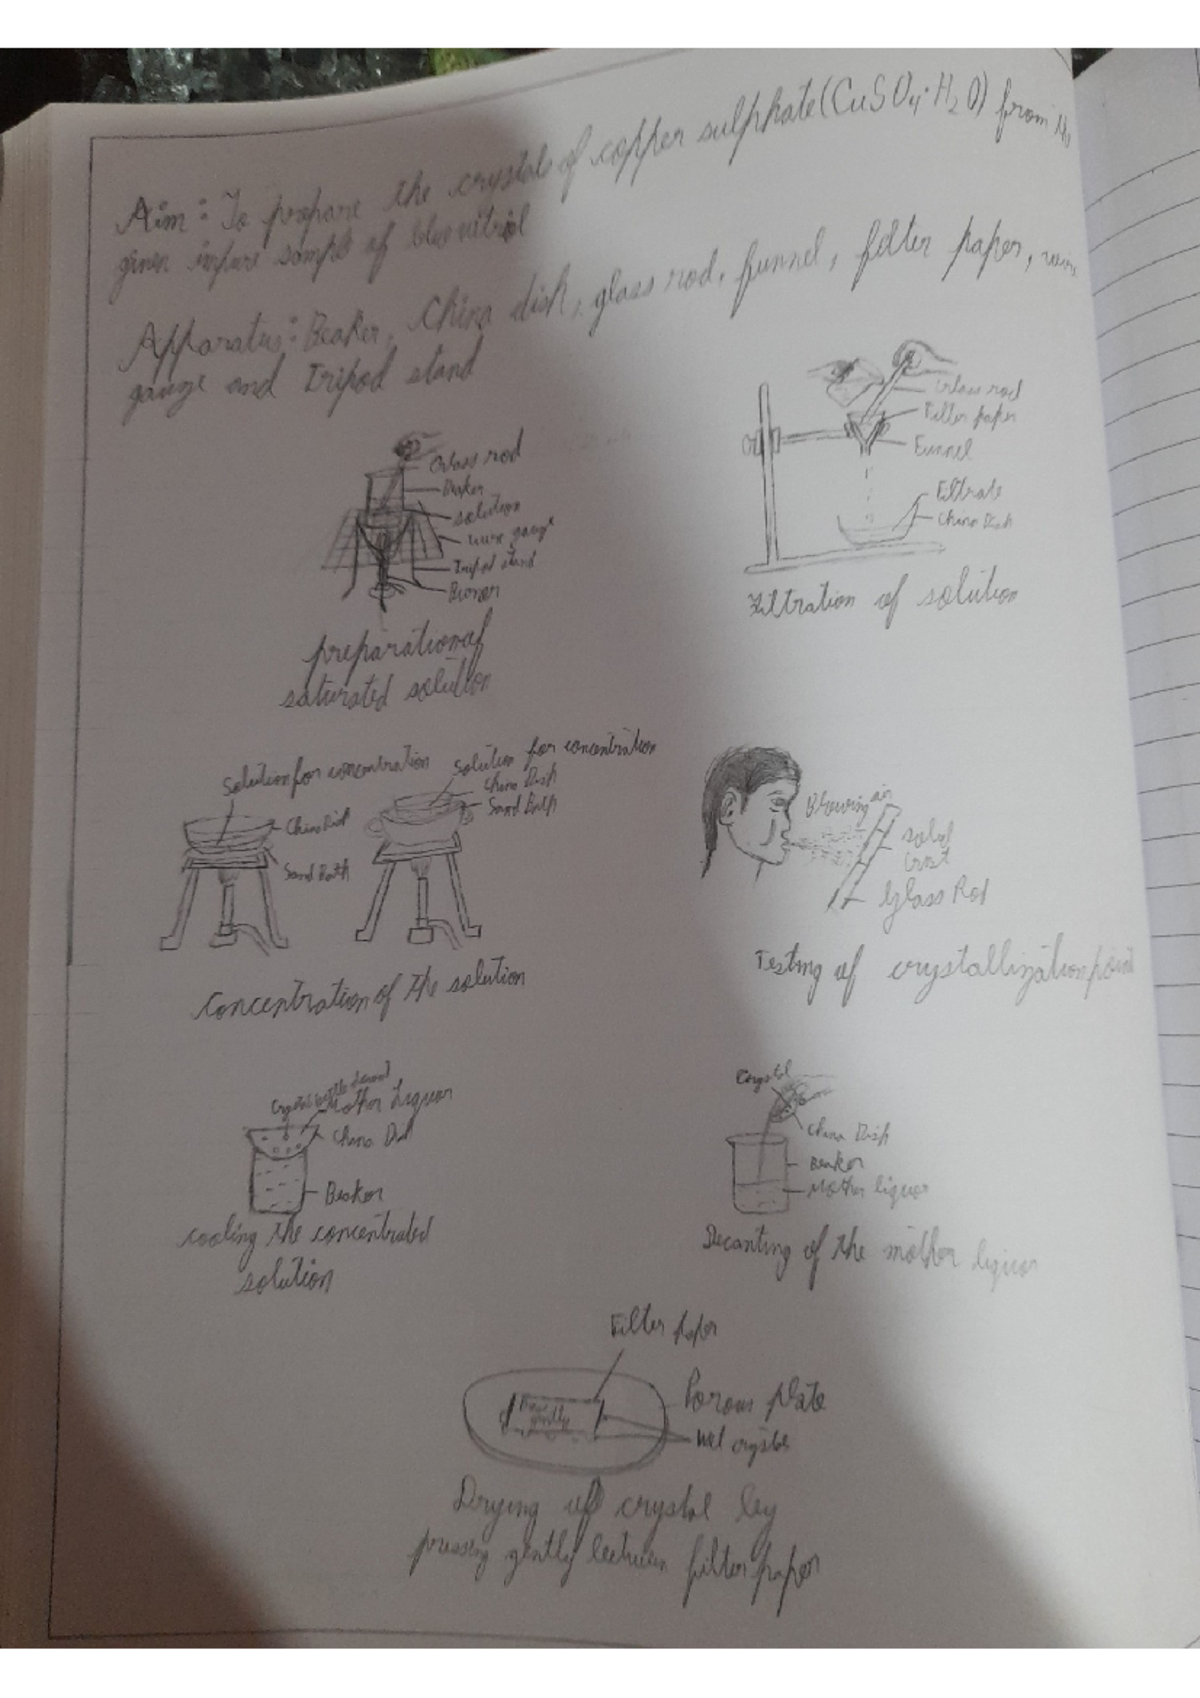 Aim: To prepare the crystal of copper sulphate (CuSO4·H2O) from
given impure sample of blue vitriol
Apparatus: Beaker, China dish, glass rod, funnel, filter paper, wire
gauze and Tripod stand
Glass rod
Beaker
solution
wire gauze
Tripod stand
Burner
preparation of
saturated solution
Glass rod
Filter paper
Funnel
Filtrate
China Dish
Filtration of solution
Solution for concentration
China Dish
Sand Bath
Solution for concentration
China Dish
Sand Bath
Concentration of the solution
Blowing air
solid
Crust
Glass Rod
Testing of crystallization point
Mother Liquor
China Dish
Beaker
cooling the concentrated
solution
Crystal
China Dish
Beaker
Mother liquor
Decanting of the mother liquor
Filter paper
gently
Porous plate
Wet crystals
Drying of crystal by
pressing gently between filter paper